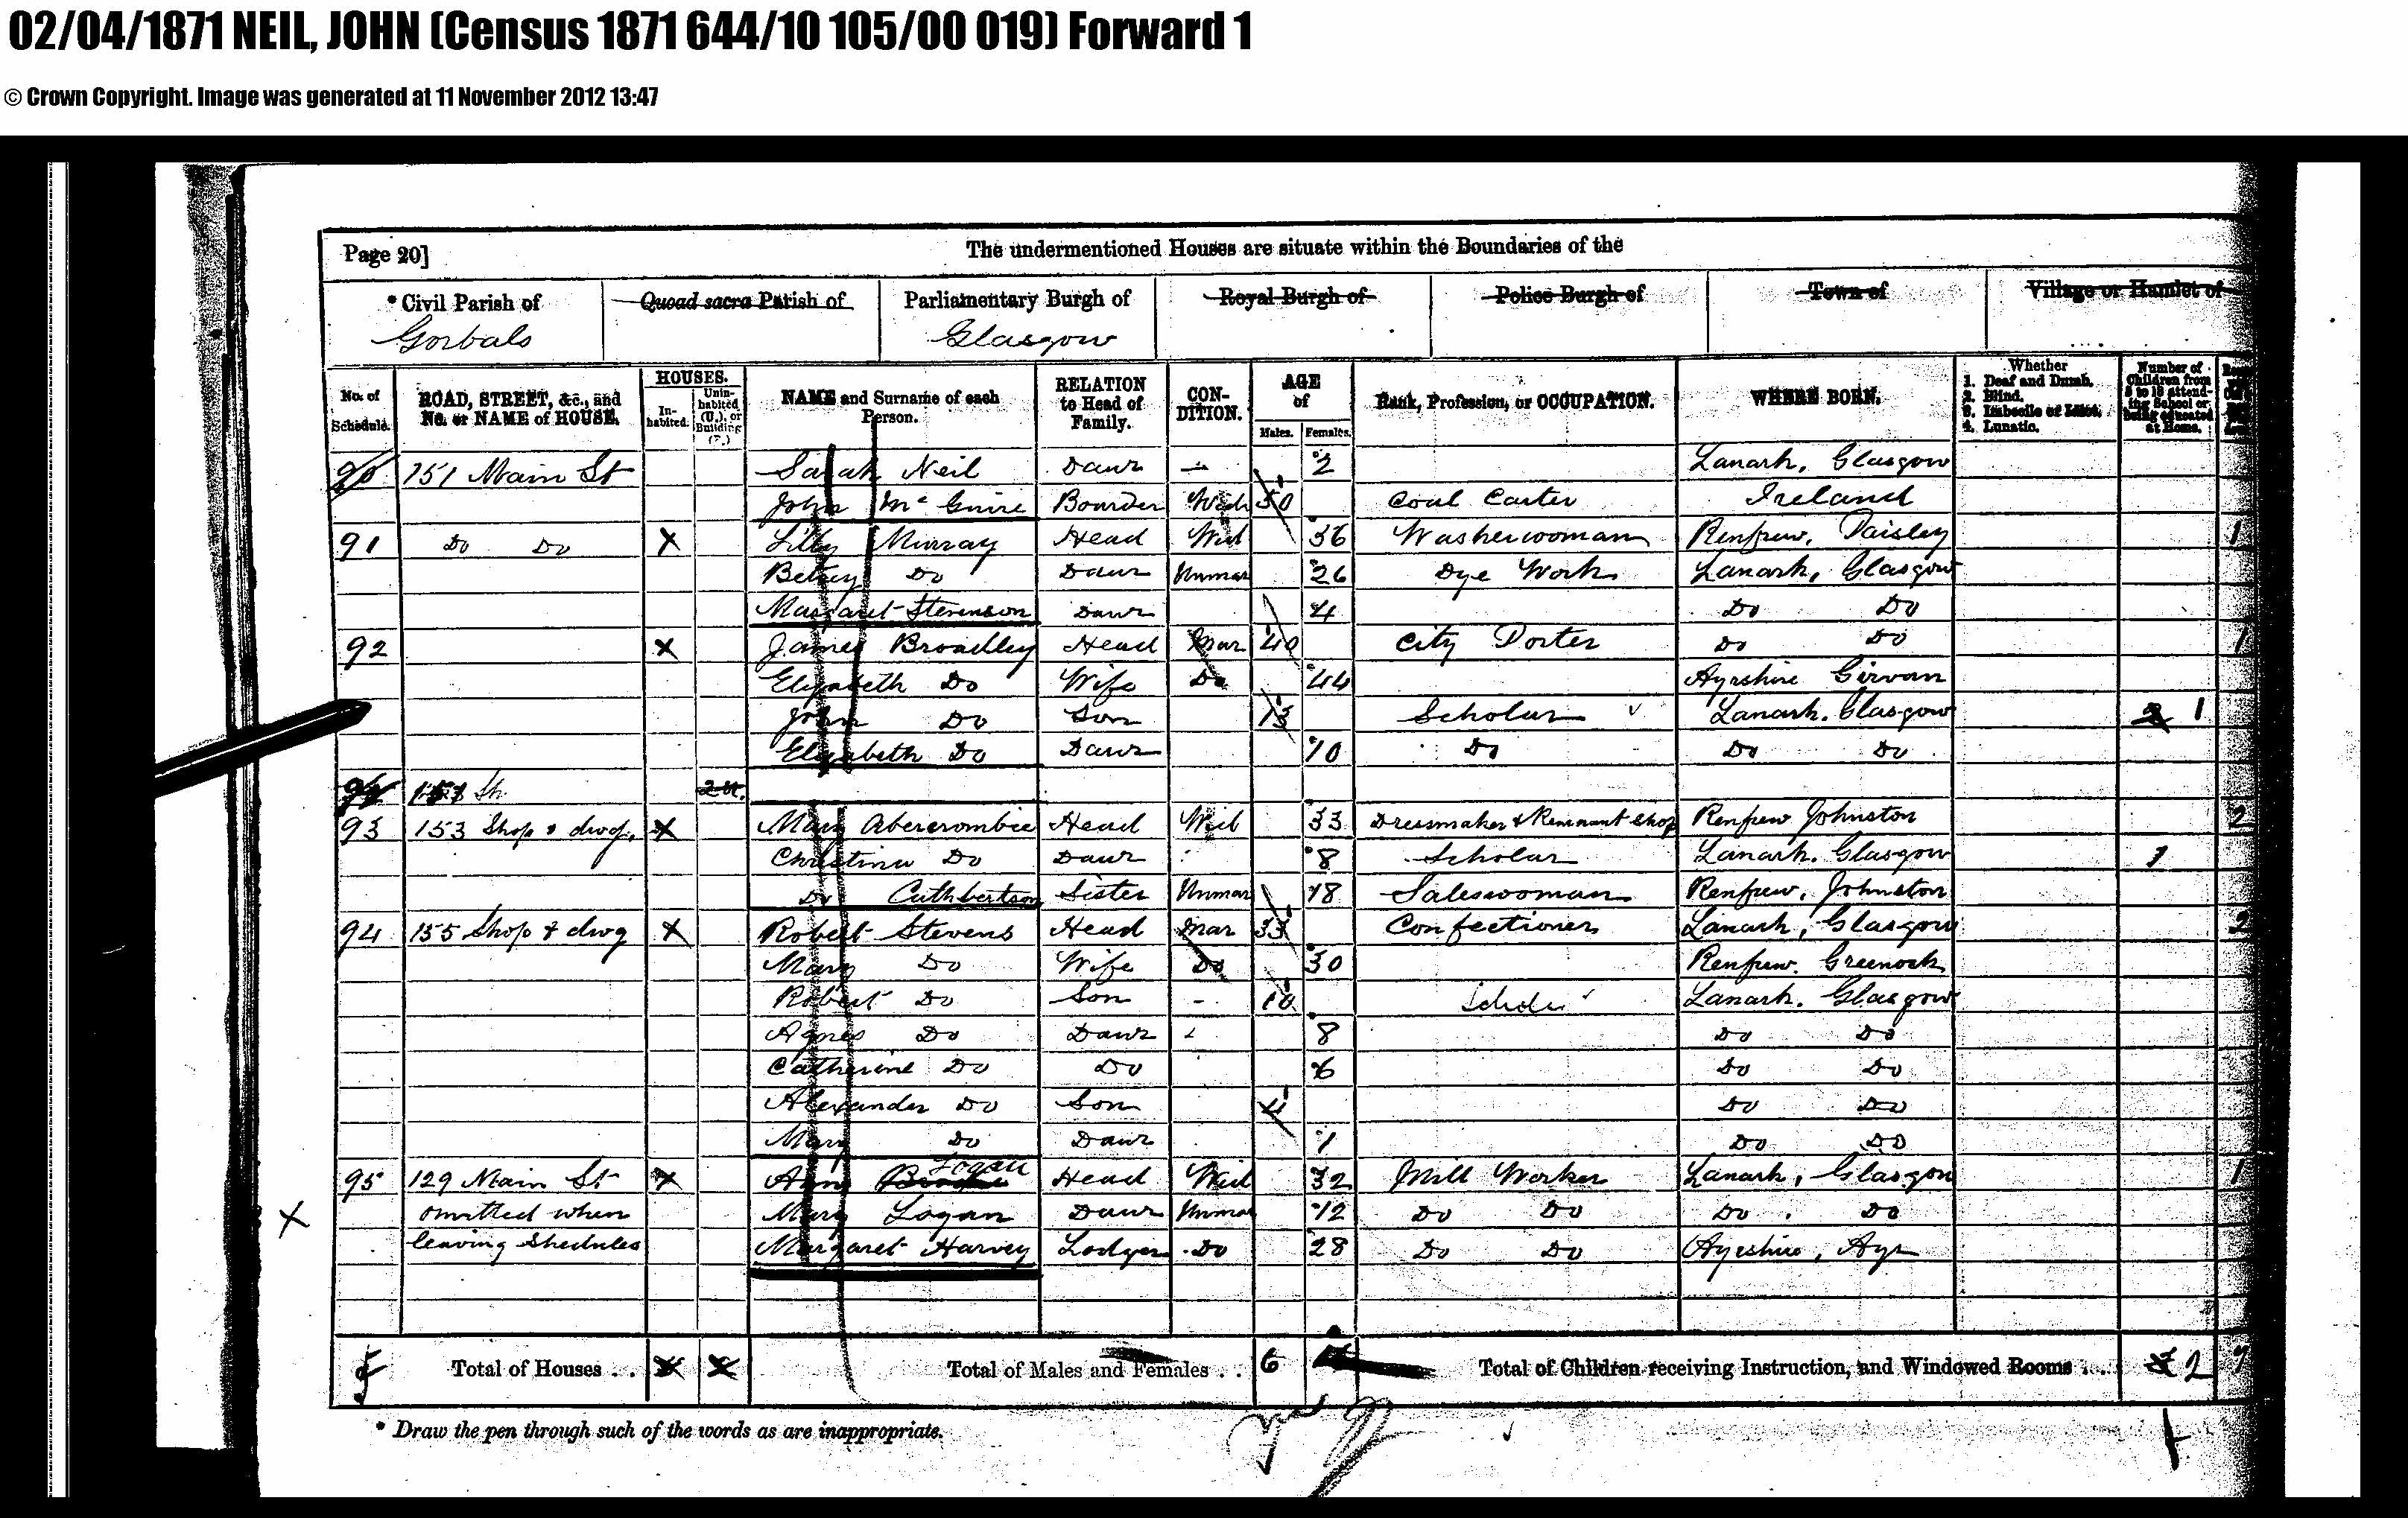 02/04/1871 NEIL, JOHN (Census 1871 644/10 105/00 019) Forward 1
© Crown Copyright. Image was generated at 11 November 2012 13:47
Page 20] The undermentioned Houses are situate within the Boundaries of the
* Civil Parish of Quoad sacra Parish of Parliamentary Burgh of Royal Burgh of Police Burgh of Town of Village or Hamlet of
Gorbals Glasgow
No. of Schedule. ROAD, STREET, &c., and No. or NAME of HOUSE. HOUSES. In-habited. Unin-habited (U.), or Building (B.) NAME and Surname of each Person. RELATION to Head of Family. CON-DITION. AGE of Males. Females. Rank, Profession, or OCCUPATION. WHERE BORN. Whether 1. Deaf and Dumb. 2. Blind. 3. Imbecile or Idiot. 4. Lunatic. Number of Children from 5 to 13 attend-ing School or being educated at Home.
90 151 Main St Sarah Neil Daur 2 Lanark, Glasgow
John Mc Guire Boarder Wid 50 Coal Carter Ireland
91 Do Do X Lilly Murray Head Wid 56 Washerwoman Renfrew, Paisley 1
Betsey Do Daur Unmar 26 Dye Work Lanark, Glasgow
Margaret Stevenson Daur 4 Do Do
92 X James Broadley Head Mar 40 City Porter Do Do 1
Elizabeth Do Wife Do 44 Ayrshire Girvan
John Do Son 13 Scholar Lanark. Glasgow 2 1
Elizabeth Do Daur 10 Do Do Do
151 Sh. 2 U.
93 153 Shop & dwg. X Mary Abercrombie Head Wid 33 Dressmaker & Remnant Shop Renfrew Johnston 2
Christina Do Daur 8 Scholar Lanark. Glasgow 1
Do Cuthbertson Sister Unmar 18 Saleswoman Renfrew, Johnston
94 155 Shop & dwg X Robert Stevens Head Mar 33 Confectioner Lanark, Glasgow 2
Mary Do Wife Do 30 Renfrew. Greenock
Robert Do Son - 10 Scholar Lanark. Glasgow
Agnes Do Daur 8 Do Do
Catherine Do Do 6 Do Do
Alexander Do Son 4 Do Do
Mary Do Daur 1 Do Do
95 129 Main St X Ann Logan Head Wid 32 Mill Worker Lanark, Glasgow 1
X omitted when Mary Logan Daur Unmar 12 Do Do Do Do
leaving Shedules Margaret Harvey Lodger Do 28 Do Do Ayeshire, Ayr
5 Total of Houses . . Total of Males and Females . . 6 Total of Children receiving Instruction, and Windowed Rooms . . 2 7
* Draw the pen through such of the words as are inappropriate.